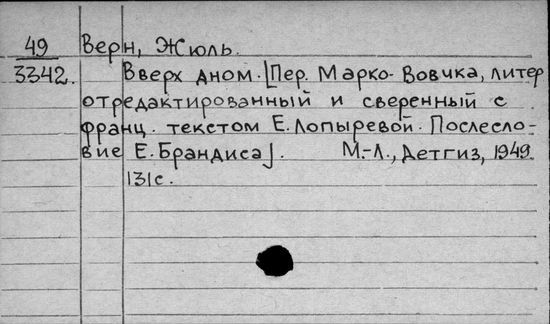 49 Верн, Жюль.
3342. Вверх дном. [Пер. Марко-Вовчка, литер
отредактированный и сверенный с
франц. текстом Е. Лопыревой. Послесло-
вие Е. Брандиса]. М.-Л., Детгиз, 1949.
131с.